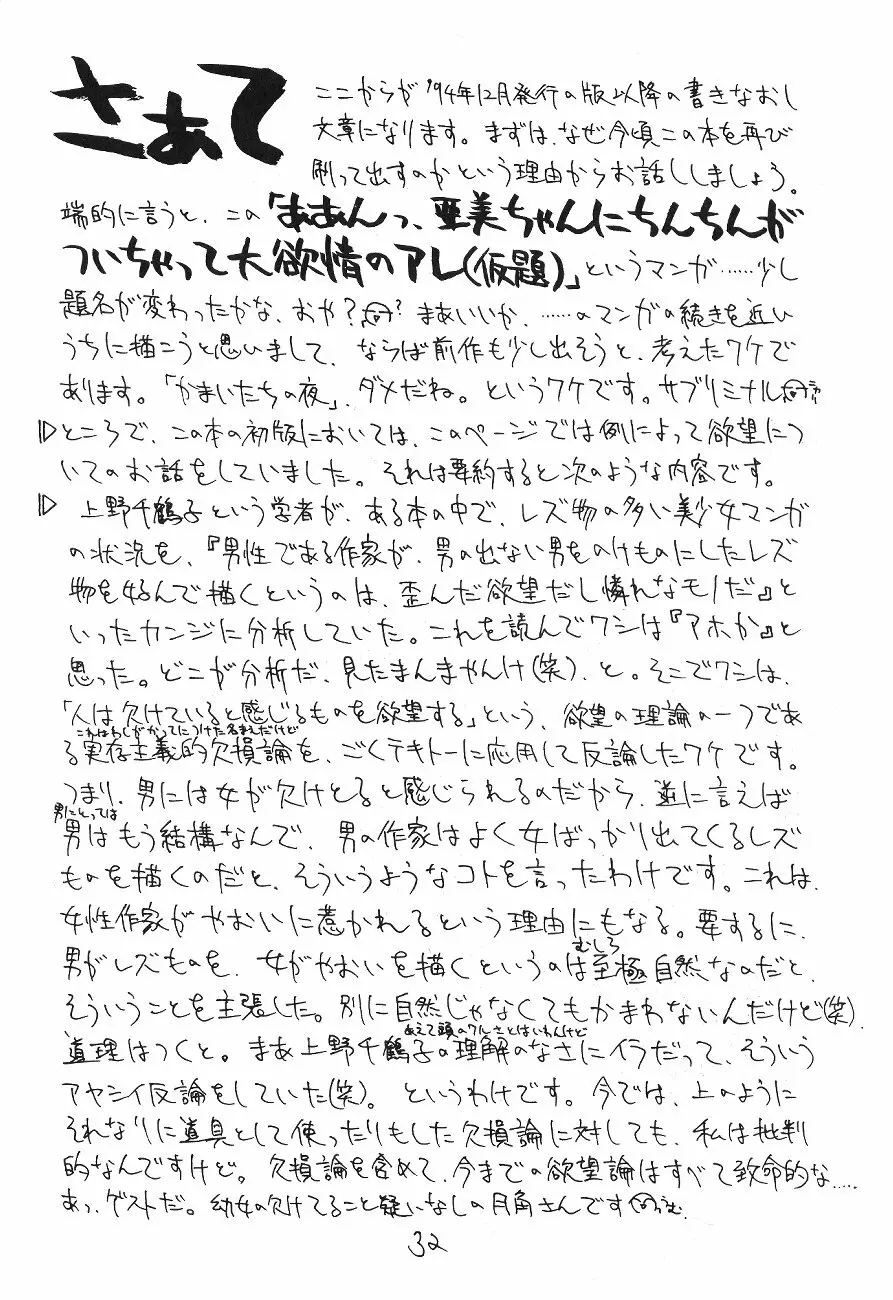 さぁて
ここからが'94年12月発行の版以降の書きなおし
文章になります。まずは、なぜ今頃この本を再び
刷って出すのかという理由からお話ししましょう。
端的に言うと、この「ああんっ、亜美ちゃんにちんちんが
ついちゃって大欲情のアレ(仮題)」というマンガ……少し
題名が変わったかな、おや?? まあいいか、……のマンガの続きを近い
うちに描こうと思いまして、ならば前作も少し出そうと、考えたワケで
あります。「かまいたちの夜」、ダメだね。というワケです。サブリミナル
▷ところで、この本の初版においては、このページでは例によって欲望につ
いてのお話をしていました。それは要約すると次のような内容です。
▷上野千鶴子という学者が、ある本の中で、レズ物の多い美少女マンガ
の状況を、『男性である作家が、男の出ない男をのけものにしたレズ
物を好んで描くというのは、歪んだ欲望だし憐れなモノだ』と
いったカンジに分析していた。これを読んでワシは『アホか』と
思った。どこが分析だ、見たまんまやんけ(笑)、と。そこでワシは、
「人は欠けていると感じるものを欲望する」という、欲望の理論の一つであ
これはわしがかってにつけた名まえだけど
る実存主義的欠損論を、ごくテキトーに応用して反論したワケです。
つまり、男には女が欠けとると感じられるのだから、逆に言えば
男にとっては
男はもう結構なんで、男の作家はよく女ばっかり出てくるレズ
ものを描くのだと、そういうようなコトを言ったわけです。これは、
女性作家がやおいに惹かれるという理由にもなる。要するに、
むしろ
男がレズものを、女がやおいを描くというのは至極自然なのだと、
そういうことを主張した。別に自然じゃなくてもかまわないんだけど(笑)、
あえて頭のワルさとはいわんけど
道理はつくと。まあ上野千鶴子の理解のなさにイラだって、そういう
アヤシイ反論をしていた(笑)。というわけです。今では、上のように
それなりに道具として使ったりもした欠損論に対しても、私は批判
的なんですけど。欠損論を含めて、今までの欲望論はすべて致命的な.....
あっ、ゲストだ。幼女の欠けてること疑いなしの月角さんです
32